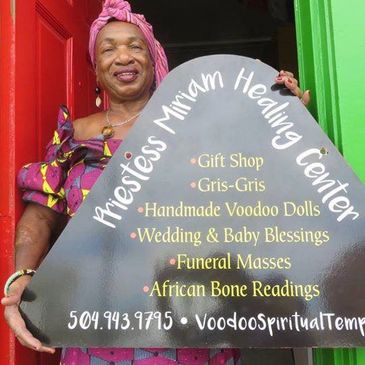 Priestess Miriam Healing Center
•Gift Shop
•Gris-Gris
•Handmade Voodoo Dolls
•Wedding & Baby Blessings
•Funeral Masses
•African Bone Readings
504.943.9795 • VoodooSpiritualTemp